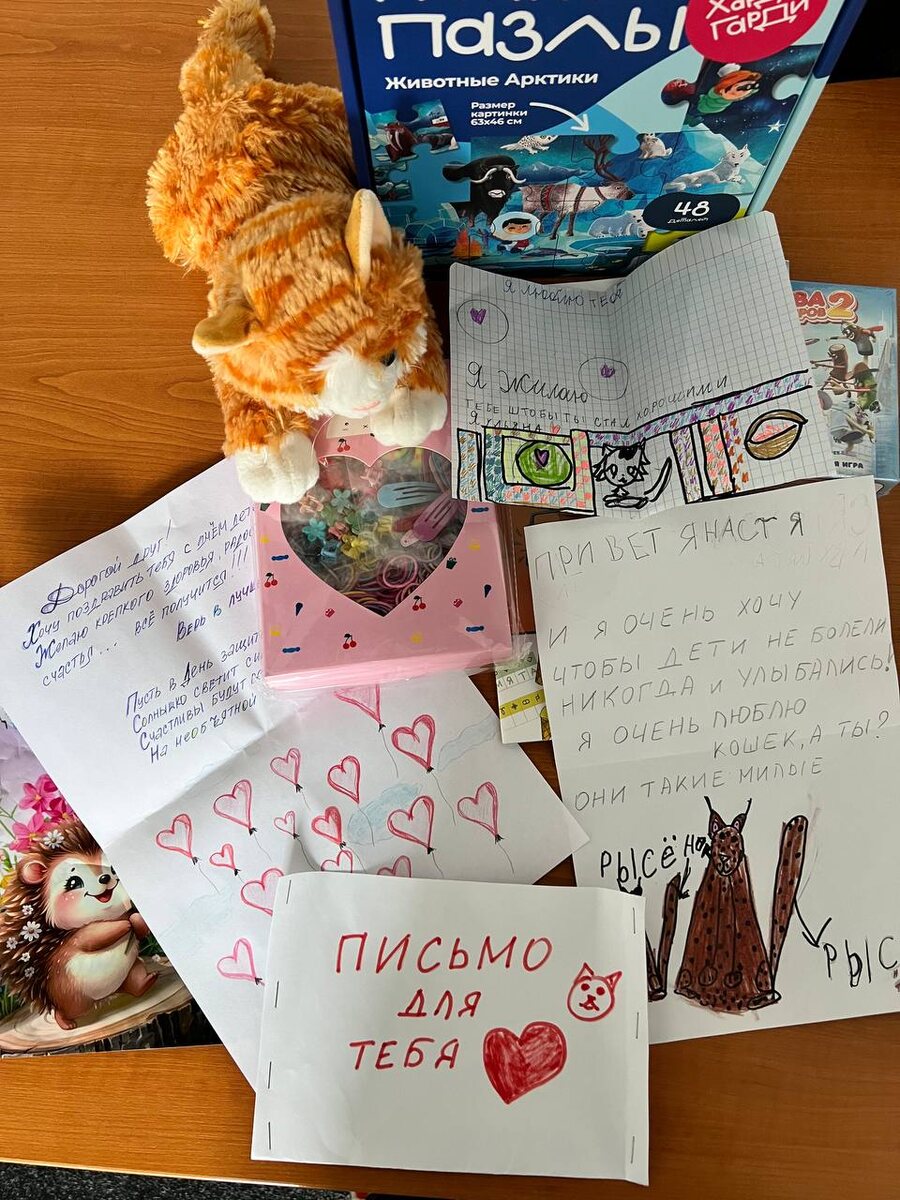 ПАЗЛЫ
ХАРДИ
ГАРДИ
Животные Арктики
Размер
картинки
63х46 см
48
деталей
2
ИГРА
Я люблю тебя
Я Жилаю
ТЕБЕ ШТОБЫ ТЫ СТАЛ ХОРОЧИМИ
Я УЛЬЯНА
Дорогой друг!
Хочу поздравить тебя с днём
Желаю крепкого здоровья,
счастья... всё получится!!!
Верь в
Пусть в День
Солнышко светит
Счастливы будут
На необъятной
ПРИВЕТ Я НАСТЯ
И Я ОЧЕНЬ ХОЧУ
ЧТОБЫ ДЕТИ НЕ БОЛЕЛИ
НИКОГДА И УЛЫБАЛИСЬ!
Я ОЧЕНЬ ЛЮБЛЮ
КОШЕК, А ТЫ?
ОНИ ТАКИЕ МИЛЫЕ
РЫСЁНОК
РЫС
ПИСЬМО
ДЛЯ
ТЕБЯ